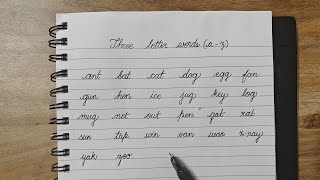 Three letter words (a-z)
ant bat cat dog egg fan
gun hen ice jug key log
mug net out pen qat rat
sun tap urn van war x-ray
yak zoo